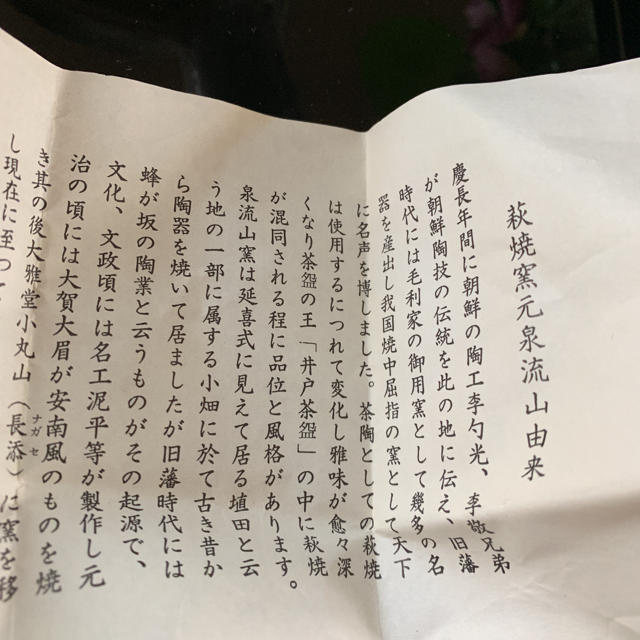 萩焼窯元泉流山由来
慶長年間に朝鮮の陶工李勺光、李敬兄弟
が朝鮮陶技の伝統を此の地に伝え、旧藩
時代には毛利家の御用窯として幾多の名
器を産出し我国焼中屈指の窯として天下
に名声を博しました。茶陶としての萩焼
は使用するにつれて変化し雅味が愈々深
くなり茶盌の王「井戸茶盌」の中に萩焼
が混同される程に品位と風格があります。
泉流山窯は延喜式に見えて居る埴田と云
う地の一部に属する小畑に於て古き昔か
ら陶器を焼いて居ましたが旧藩時代には
蜂が坂の陶業と云うものがその起源で、
文化、文政頃には名工泥平等が製作し元
治の頃には大賀大眉が安南風のものを焼
き其の後大雅堂小丸山(長添)に窯を移
ナガセ
し現在に至って